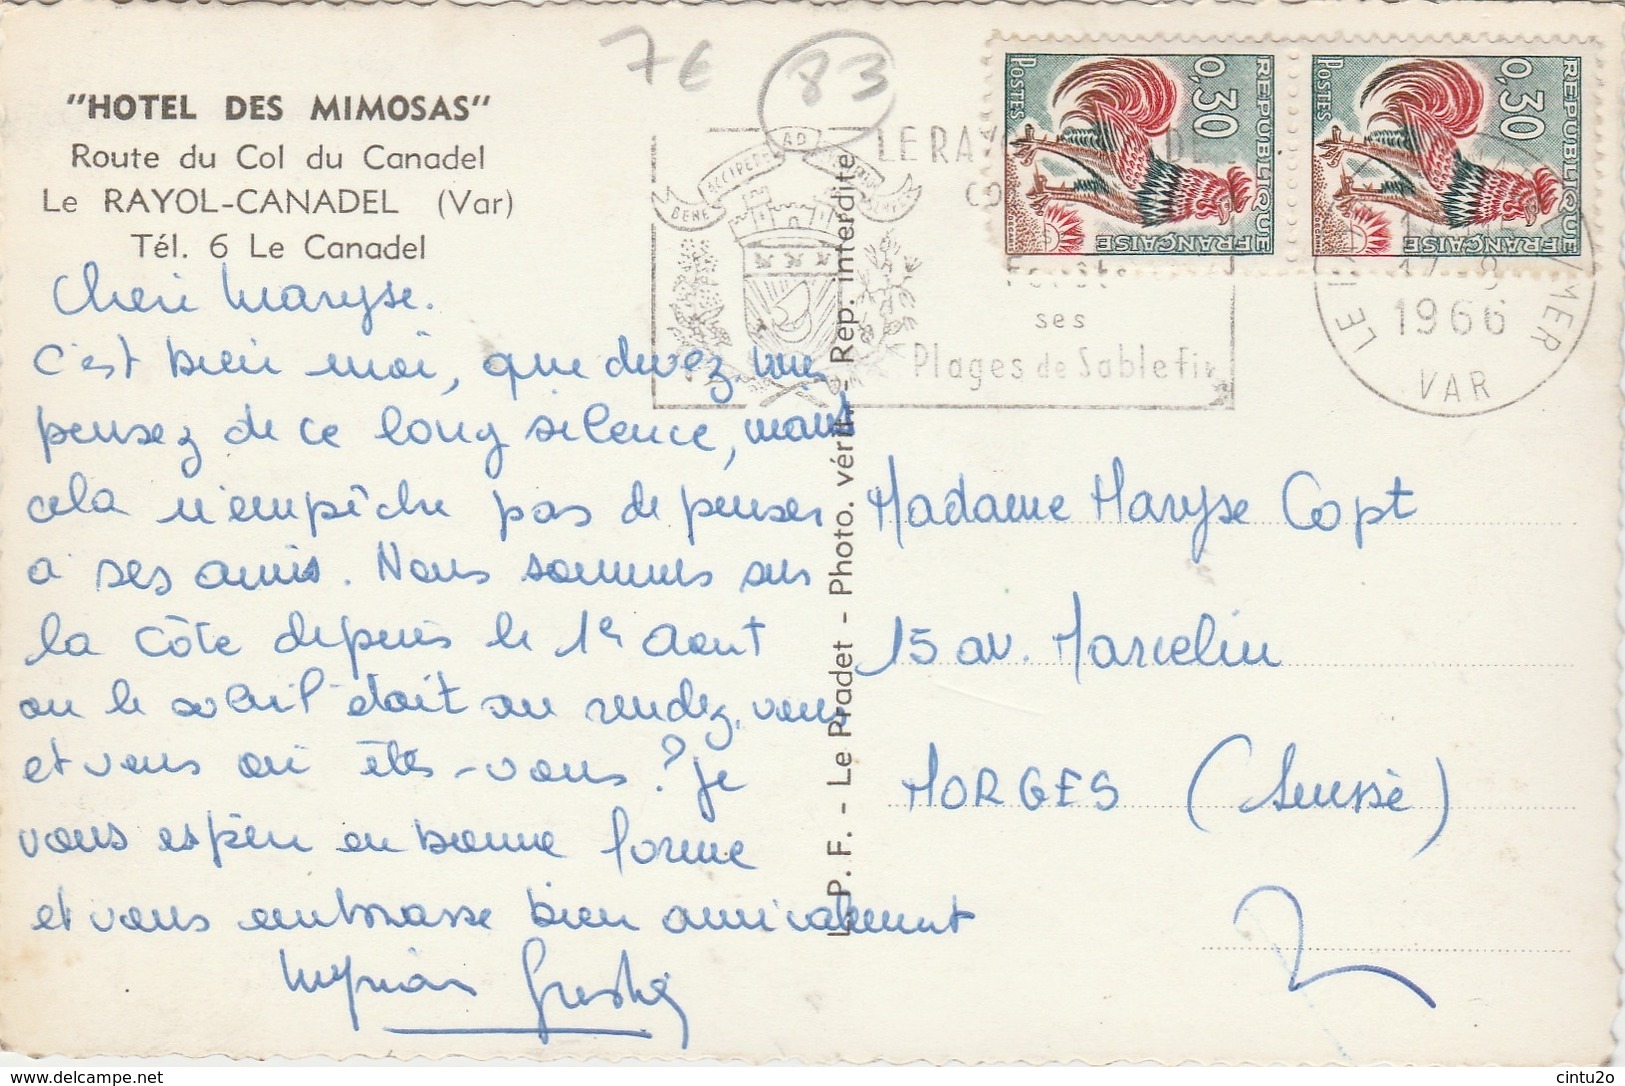 7€ 83
"HOTEL DES MIMOSAS"
Route du Col du Canadel
Le RAYOL-CANADEL (Var)
Tél. 6 Le Canadel
Cheri Maryse.
C'est bien moi, que devez-vous
pensez de ce long silence, mais
cela n'empêche pas de penser
à ses amis. Nous sommes sur
la Côte depuis le 1er Aout
ou le soleil était au rendez-vous
et vous où êtes-vous ? Je
vous espère en bonne forme
et vous embrasse bien amicalement
Myriam
L. P. F. - Le Pradet - Photo. vérit. - Rep. interdite
BENE ACCIPERE AD
LE RAY
ses
Plages de Sable fin
POSTES 0,30 REPUBLIQUE FRANÇAISE
POSTES 0,30 REPUBLIQUE FRANÇAISE
1966
VAR
Madame Maryse Copt
15 av. Marcelin
MORGES (Suisse)
delcampe.net
cintu2o